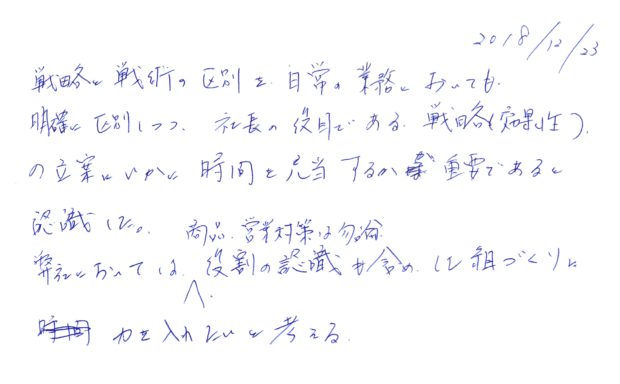 2018/12/23
戦略と戦術の区別を日常の業務においても
明確に区別しつつ、社長の役目である戦略(効果性)
の立案にいかに時間を充当するかが重要であると
認識した。
商品、営業対策は勿論
弊社においては、役割の認識も含め、仕組づくりに
力を入れたいと考える。